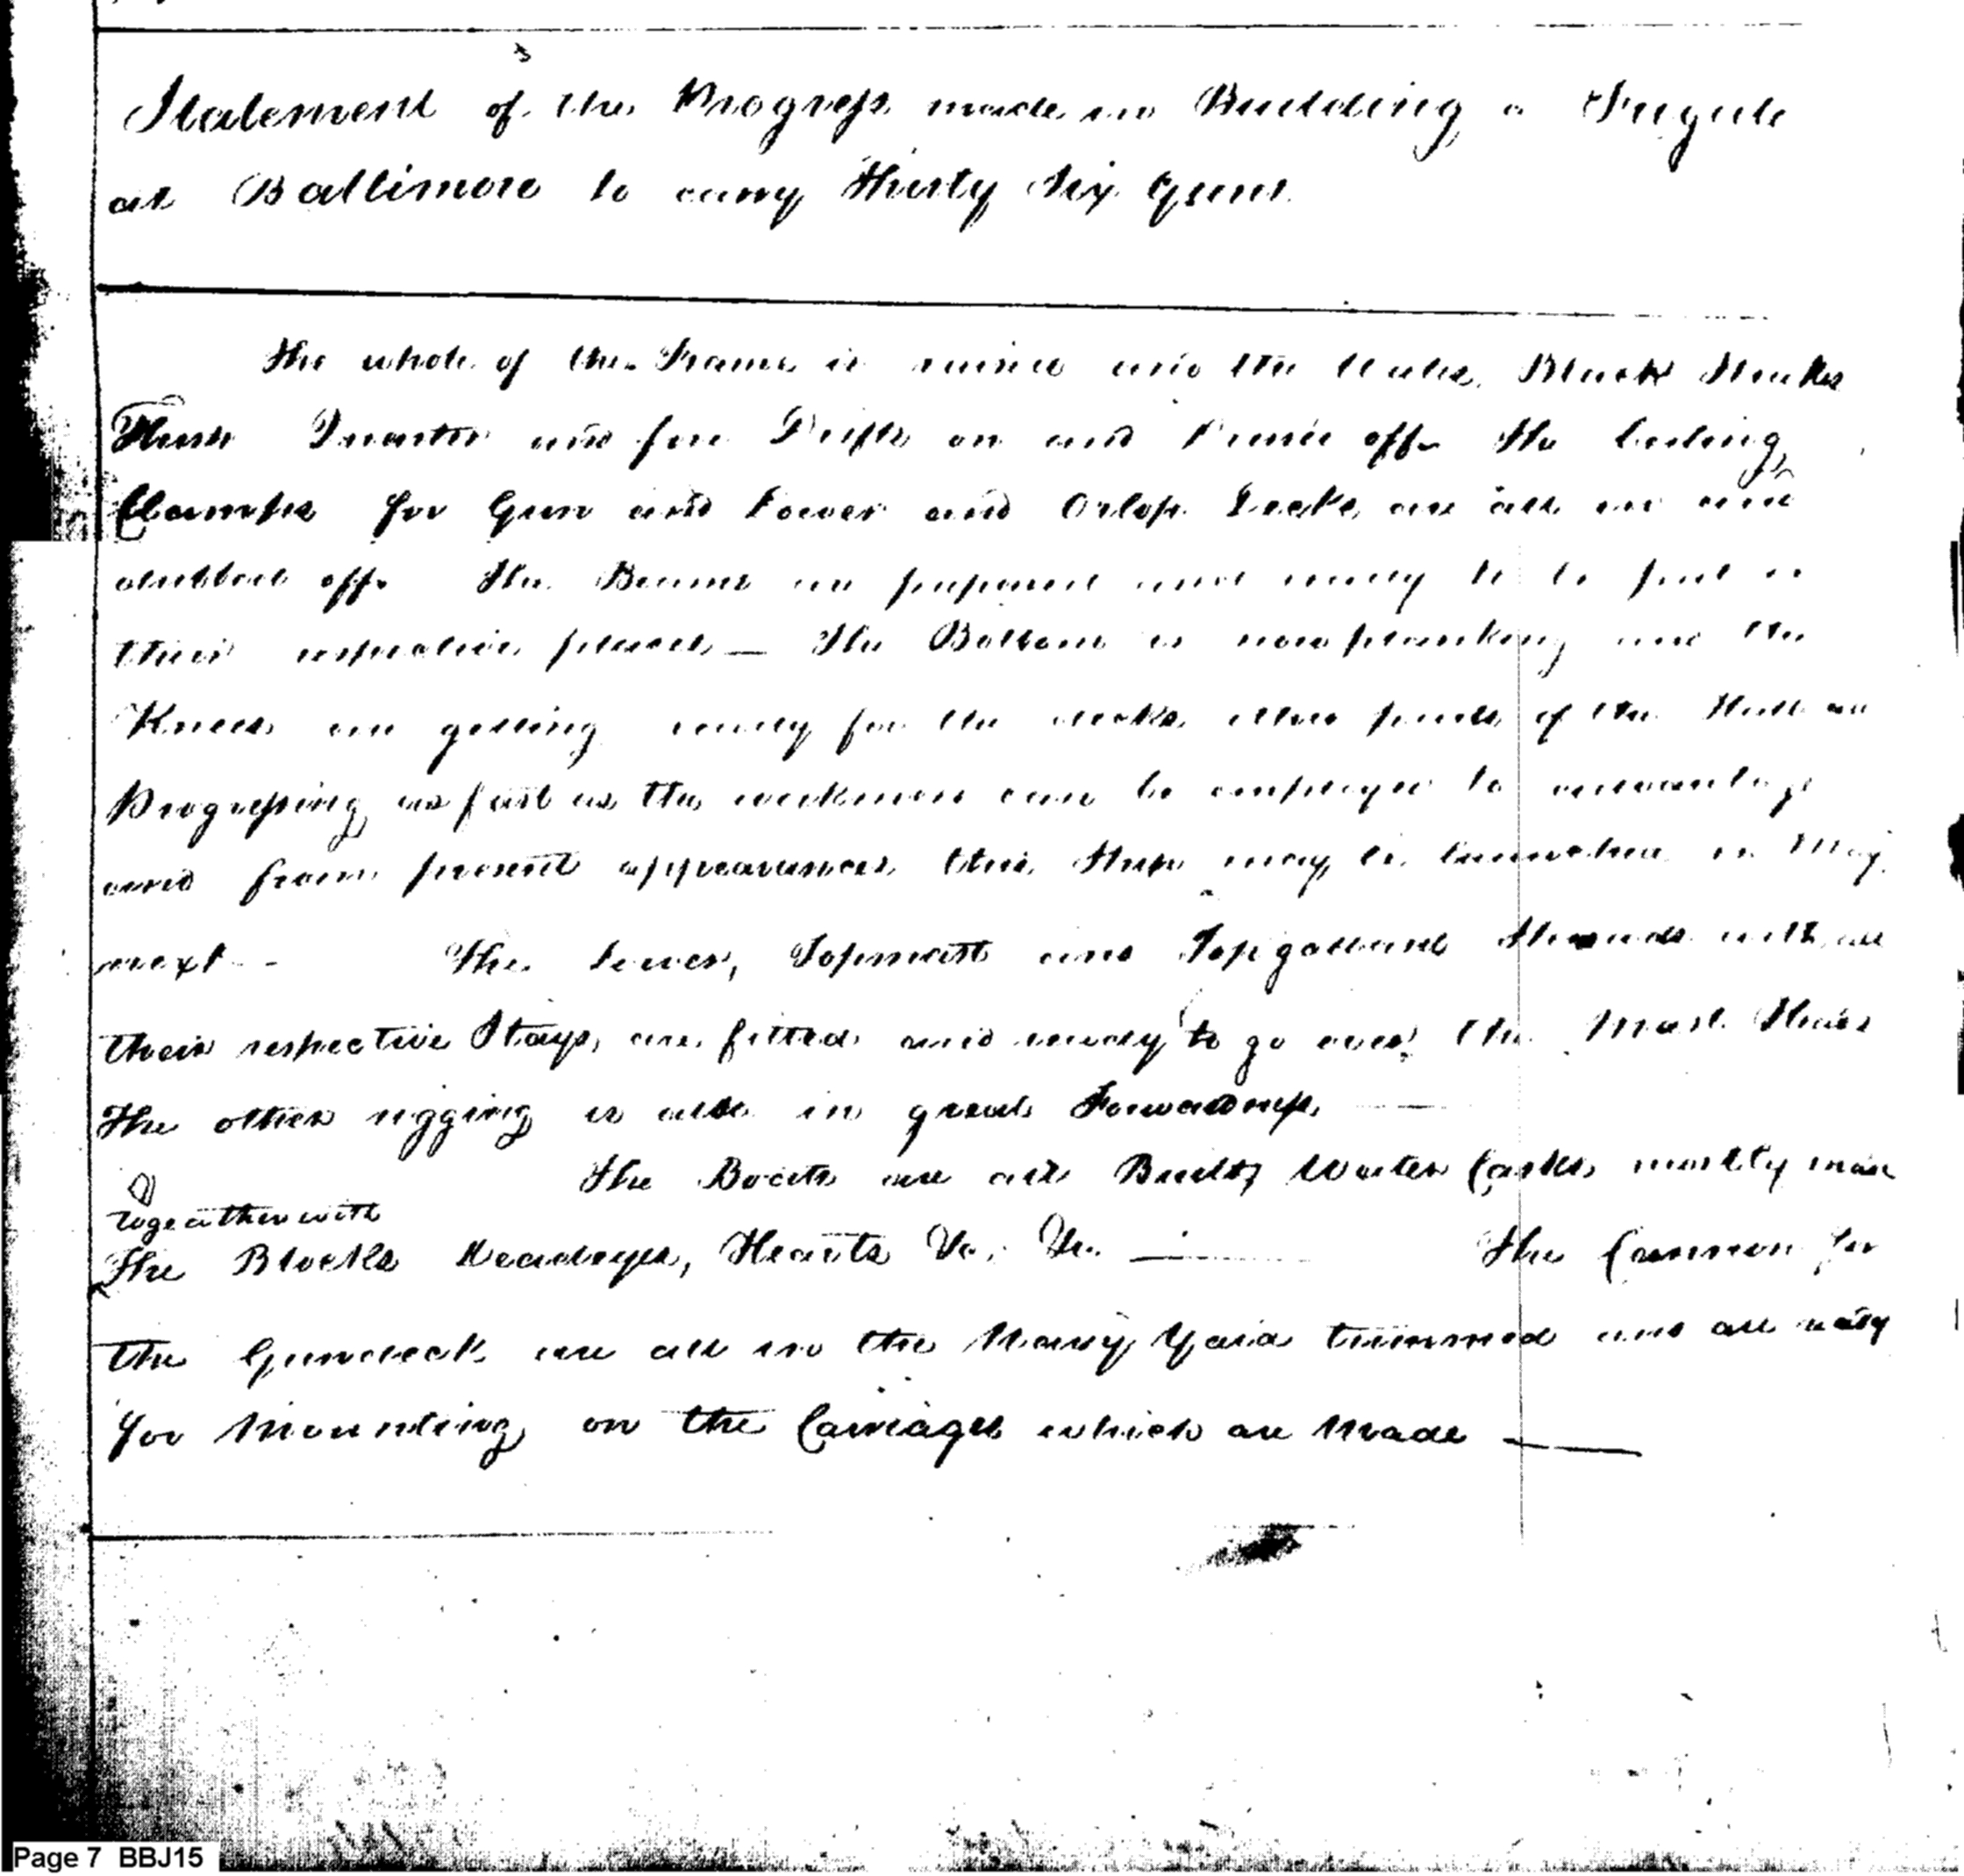 Statement of the Progress made in Building a Frigate
at Baltimore to carry Thirty Six Guns.
The whole of the Frame is raised and the Wales, Black Strakes
Quarter and fore Drifts on and off. The Ceiling,
Clamps for Gun and Lower and Orlop Decks are all in and
dubbed off. The Beams are prepared and ready to be put in
their respective places — The Bottom is now planking and the
Knees are getting ready for the decks other parts of the Hull are
Progressing as fast as the workmen can be employed to advantage
and from present appearances this Ship may be launched in May
next — The Lower, Topmast and Topgallant Shrouds with all
their respective Stays, are fitted and ready to go over the Mast Heads
The other rigging is also in great Forwardness —
The Boats are all Built, Water Casks mostly made
Togeather with
The Blocks Deadeyes, Hearts &c. &c. — The Cannon for
the Gundeck are all in the Navy Yard trimmed and are ready
for Mounting on the Carriages which are Made —
Page 7 BBJ15